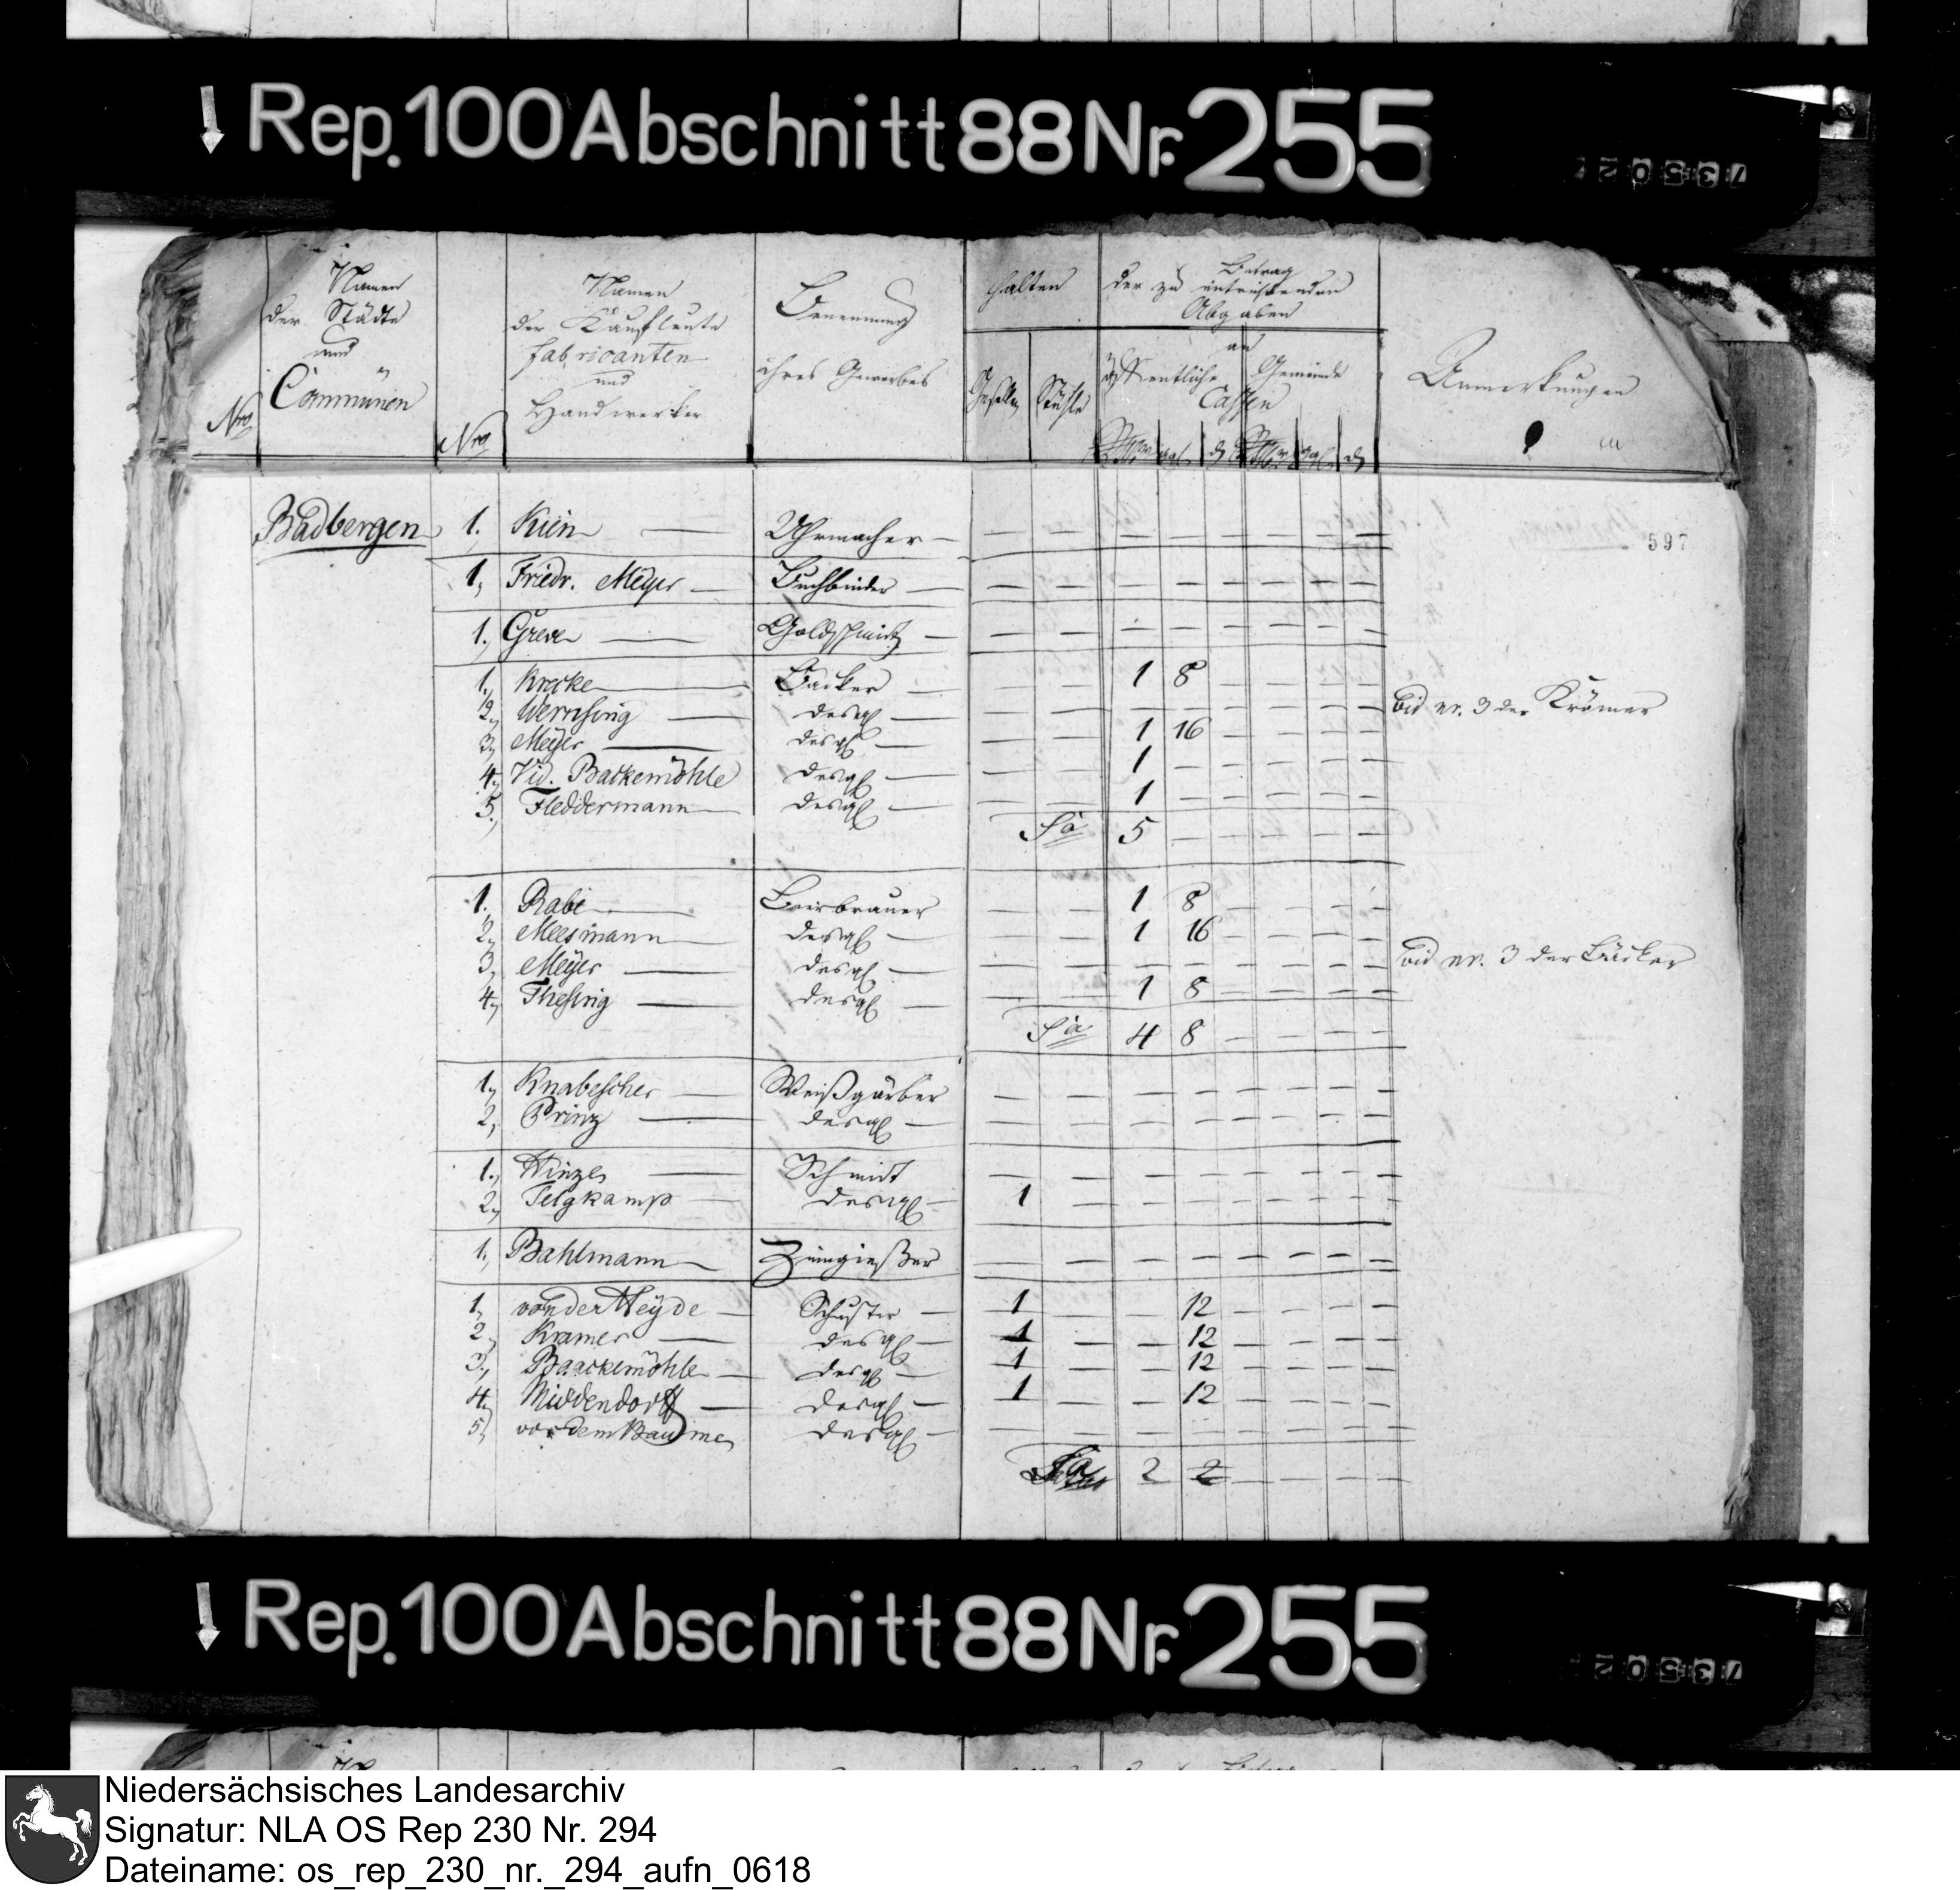 Rep. 100 Abschnitt 88 Nr. 255
735027
Nro
Namen der Städte und Communen
Nro
Namen der Kaufleute fabricanten und Handwerker
Benennung ihres Gewerbes
halten
Gesellen Stühle
Betrag der zu entrichtenden Abgaben
an
öffentliche Gemeinde
Cassen
ggl. d ggl. d
Anmerkungen
597
Badbergen 1. Kün — Uhrmacher — — — — — — — — —
1, Friedr. Meyer — Buchbinder — — — — — — — — —
1. Greve — Goldschmidt — — — — — — — — —
1. Krecke — Bäcker — — — 1 8 — — — —
2, Wernsing — desgl — — — — — — — — — bid nr. 3 der Krämer
3, Meyer — desgl — — — 1 16 — — — —
4, Vid. Backemöhle desgl — — — 1 — — — — —
5, Fleddermann — desgl — — — 1 — — — — —
Sa 5 — — — — —
1. Rabe — Bierbrauer — — 1 8 — — — —
2, Meesmann — desgl — — 1 16 — — — —
3, Meyer — desgl — — — — — — — — — bid nr. 3 der Bäcker
4, Thesing — desgl — — — 1 8 — — — —
Sa 4 8 — — — —
1, Knabescher — Weißgärber — — — — — — — —
2, Prinz — desgl — — — — — — — — —
1, Hinze — Schmidt — — — — — — — —
2, Telgkamp — desgl — 1 — — — — — — —
1, Bahlmann — Zinngießer — — — — — — — —
1, von der Heyde — Schuster — 1 — — 12 — — — —
2, Kramer — desgl — 1 — — 12 — — — —
3, Baackemöhle — desgl — 1 — — 12 — — — —
4, Middendorff — desgl — 1 — — 12 — — — —
5, vor dem Baume desgl — — — — — — — — —
Sa 2 2 — — — —
Rep. 100 Abschnitt 88 Nr. 255
735027
Niedersächsisches Landesarchiv
Signatur: NLA OS Rep 230 Nr. 294
Dateiname: os_rep_230_nr._294_aufn_0618